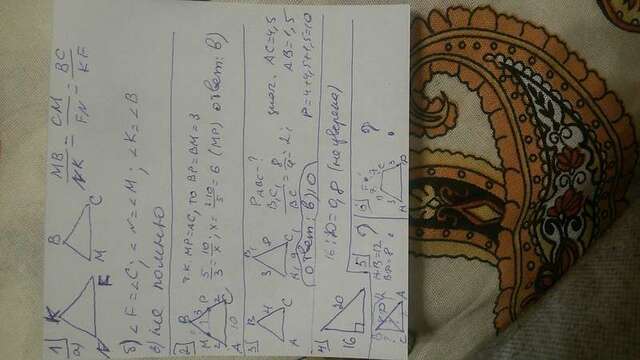 1
а)
K
N F
B
M C
MB/NK = CM/FN = BC/KF
б) ∠F = ∠C; ∠N = ∠M; ∠K = ∠B
в) не помню
2
B
M 3 P
2
A 10 C
т.к. MP=AC, то BP=BM=3
5/3 = 10/x; x = 3·10/5 = 6 (MP) ответ: в)
3
B
4
A C
B1
3 8
9 C1
PABC=?
B1C1/BC = 8/4 = 2;
AC=4,5
AB=1,5
P=4+4,5+1,5=10
ответ: в) 10
4
16 20
16:20=0,8 (не уверена)
5
?
B
C A
AB=12
BD=8
6
?
3 3